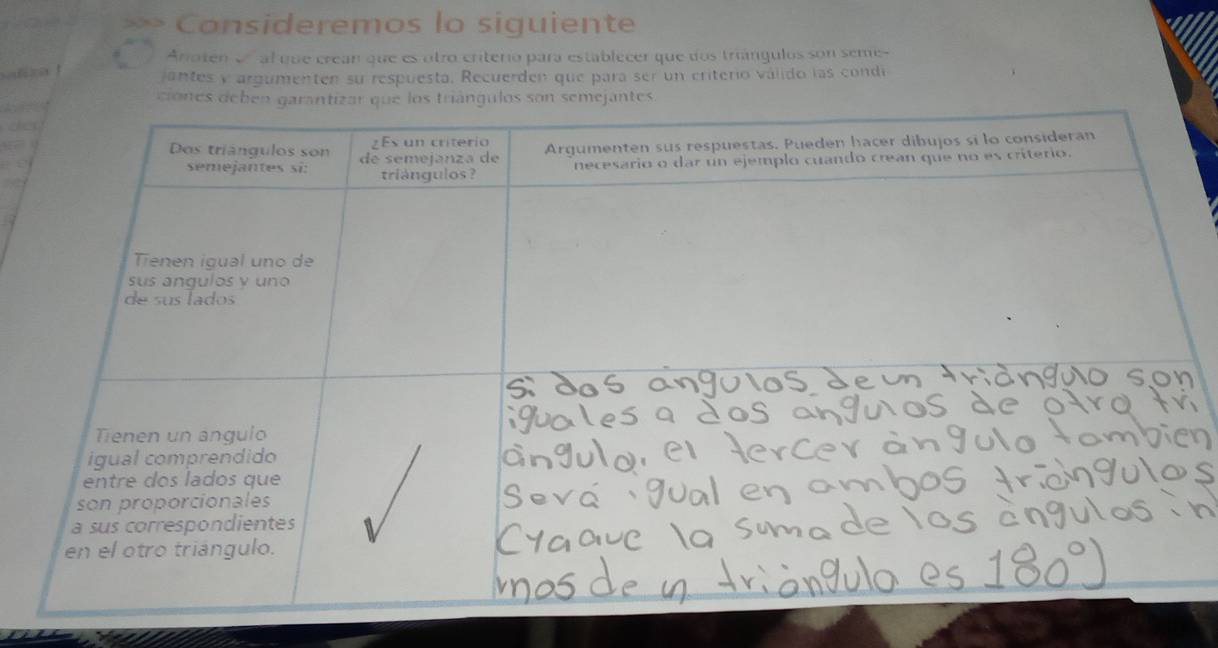 >>> Consideremos lo siguiente
Anoten ✓ al que crean que es otro criterio para establecer que dos triángulos son seme-
jantes y argumenten su respuesta. Recuerden que para ser un criterio válido las condi-
ciones deben garantizar que los triángulos son semejantes.
Dos triángulos son
semejantes si:
¿Es un criterio
de semejanza de
triángulos?
Argumenten sus respuestas. Pueden hacer dibujos si lo consideran
necesario o dar un ejemplo cuando crean que no es criterio.
Tienen igual uno de
sus ángulos y uno
de sus lados
Tienen un ángulo
igual comprendido
entre dos lados que
son proporcionales
a sus correspondientes
en el otro triángulo.
✓
si dos angulos de un triángulo son
iguales a dos angulos de otro tri
ángulo, el tercer ángulo tambien
será igual en ambos triángulos
(ya que la suma de los ángulos in
rnos de n triángulo es 180°)